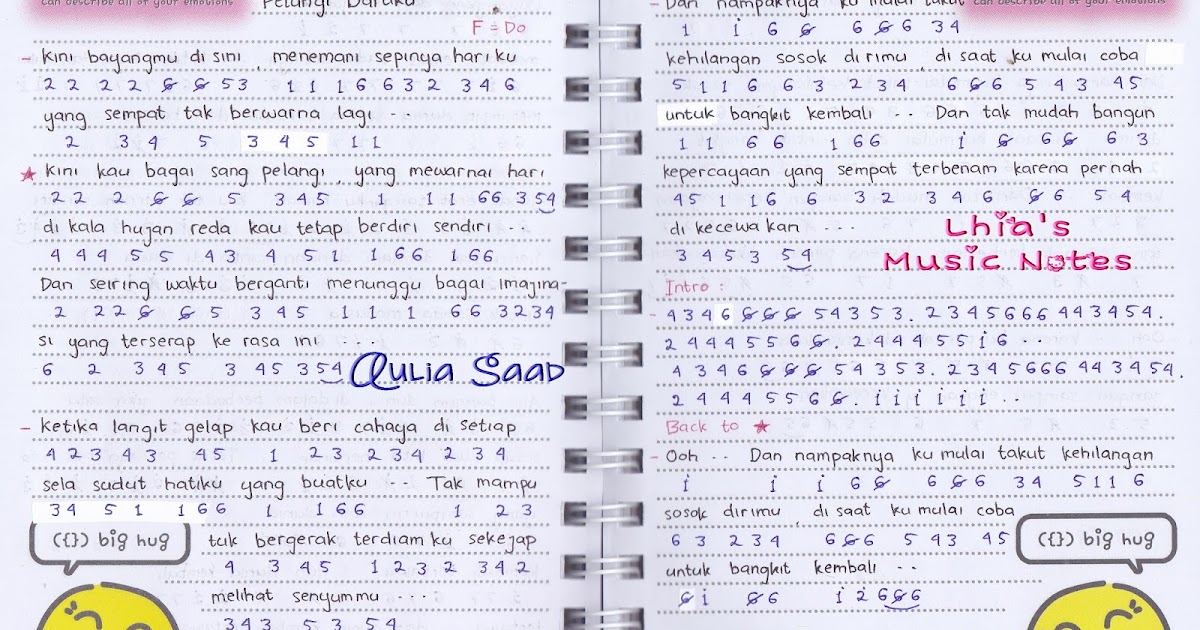 can describe all of your emotions
Pelangi Baruku
F = Do
- Kini bayangmu di sini, menemani sepinya hari ku
2 2 2 2 6 6 5 3 1 1 1 6 6 3 2 3 4 6
yang sempat tak berwarna lagi ...
2 3 4 5 3 4 5 1 1
★ Kini kau bagai sang pelangi, yang mewarnai hari
2 2 2 6 6 5 3 4 5 1 1 1 6 6 3 5 4
di kala hujan reda kau tetap berdiri sendiri ...
4 4 4 5 5 4 3 4 5 1 1 6 6 1 6 6
Dan seiring waktu berganti menunggu bagai imajina-
2 2 2 6 6 5 3 4 5 1 1 1 6 6 3 2 3 4
si yang terserap ke rasa ini ...
6 2 3 4 5 3 4 5 3 5 4
Aulia Saad
- ketika langit gelap kau beri cahaya di setiap
4 2 3 4 3 4 5 1 2 3 2 3 4 2 3 4
sela sudut hatiku yang buatku .. Tak mampu
3 4 5 1 1 6 6 1 1 6 6 1 2 3
({}) big hug
tuk bergerak terdiam ku sekejap
4 3 4 5 1 2 3 2 3 4 2
melihat senyummu ...
3 4 3 5 3 5 4
- Dan nampaknya ku mulai takut
can describe all of your emotions
1 i 6 6 6 6 6 3 4
kehilangan sosok dirimu, di saat ku mulai coba
5 1 1 6 6 3 2 3 4 6 6 6 5 4 3 4 5
untuk bangkit kembali .. Dan tak mudah bangun
1 1 6 6 1 6 6 i 6 6 6 6 3
kepercayaan yang sempat terbenam karena pernah
4 5 1 1 6 6 3 2 3 4 6 6 6 5 4
di kecewakan ....
3 4 5 3 5 4
Lhia's
Music Notes
Intro :
- 4 3 4 6 6 6 6 5 4 3 5 3 . 2 3 4 5 6 6 6 4 4 3 4 5 4 .
2 4 4 4 5 5 6 6 . 2 4 4 4 5 5 i 6 ..
4 3 4 6 6 6 6 5 4 3 5 3 . 2 3 4 5 6 6 6 4 4 3 4 5 4 .
2 4 4 4 5 5 6 6 . i i i i i i ..
Back to ★
- Ooh .. Dan nampaknya ku mulai takut kehilangan
i i i 6 6 6 6 6 3 4 5 1 1 6
sosok dirimu, di saat ku mulai coba
6 3 2 3 4 6 6 6 5 4 3 4 5
({}) big hug
untuk bangkit kembali ..
6 i 6 6 i 2 6 6 6